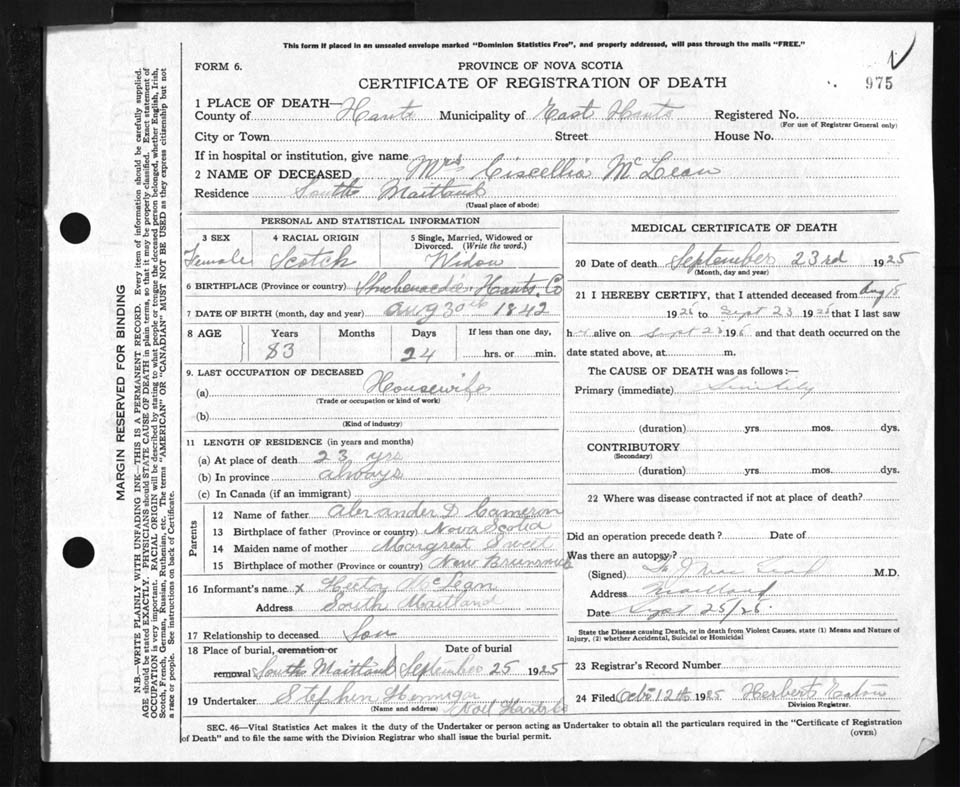 This form if placed in an unsealed envelope marked "Dominion Statistics Free", and properly addressed, will pass through the mails "FREE."
FORM 6.
PROVINCE OF NOVA SCOTIA
CERTIFICATE OF REGISTRATION OF DEATH
975
1 PLACE OF DEATH—
County of Hants Municipality of East Hants Registered No.
(For use of Registrar General only)
City or Town Street House No.
If in hospital or institution, give name
2 NAME OF DECEASED Mrs Ciscellia McLean
Residence South Maitland
(Usual place of abode)
PERSONAL AND STATISTICAL INFORMATION
3 SEX 4 RACIAL ORIGIN 5 Single, Married, Widowed or Divorced. (Write the word.)
Female Scotch Widow
6 BIRTHPLACE (Province or country) Shubenacadie Hants Co
7 DATE OF BIRTH (month, day and year) Aug 30th 1842
8 AGE Years Months Days If less than one day,
83 24 hrs. or min.
9. LAST OCCUPATION OF DECEASED
(a) Housewife
(Trade or occupation or kind of work)
(b)
(Kind of industry)
11 LENGTH OF RESIDENCE (in years and months)
(a) At place of death 23 yrs
(b) In province always
(c) In Canada (if an immigrant)
Parents
12 Name of father Alexander D Cameron
13 Birthplace of father (Province or country) Nova Scotia
14 Maiden name of mother Margret Sweet
15 Birthplace of mother (Province or country) New Brunswick
16 Informant's name x Hector McLean
Address South Maitland
17 Relationship to deceased Son
18 Place of burial, cremation or removal Date of burial
South Maitland September 25 1925
19 Undertaker Stephen Hennigar
(Name and address) Noel Hants Co
MEDICAL CERTIFICATE OF DEATH
20 Date of death September 23rd 1925
(Month, day and year)
21 I HEREBY CERTIFY, that I attended deceased from Aug 18
1925 to Sept 23 1925 that I last saw
h alive on Sept 23 192 and that death occurred on the
date stated above, at m.
The CAUSE OF DEATH was as follows:—
Primary (immediate)
(duration) yrs. mos. dys.
CONTRIBUTORY
(Secondary)
(duration) yrs. mos. dys.
22 Where was disease contracted if not at place of death?
Did an operation precede death? Date of
Was there an autopsy?
(Signed) M.D.
Address Maitland
Date Sept 25/25.
State the Disease causing Death, or in death from Violent Causes, state (1) Means and Nature of
Injury, (2) whether Accidental, Suicidal or Homicidal
23 Registrar's Record Number
24 Filed Oct 12th 1925 Herbert Eaton
Division Registrar.
SEC. 46—Vital Statistics Act makes it the duty of the Undertaker or person acting as Undertaker to obtain all the particulars required in the "Certificate of Registration
of Death" and to file the same with the Division Registrar who shall issue the burial permit.
(OVER)
MARGIN RESERVED FOR BINDING
N.B.—WRITE PLAINLY WITH UNFADING INK—THIS IS A PERMANENT RECORD. Every item of information should be carefully supplied.
AGE should be stated EXACTLY. PHYSICIANS should STATE CAUSE OF DEATH in plain terms, so that it may be properly classified. Exact statement of
OCCUPATION is very important. RACIAL ORIGIN will be described by stating to what people or tongue the deceased person belonged, whether English, Irish,
Scotch, French, German, Russian, Ruthenian, etc. The terms "AMERICAN" OR "CANADIAN" MUST NOT BE USED as they express citizenship but not
a race or people. See instructions on back of Certificate.